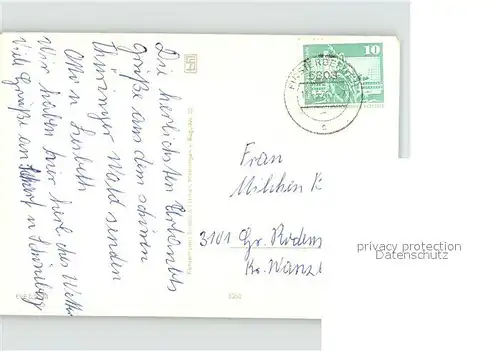 Die herzlichsten Urlaubs
grüße aus dem schönen
Thüringer Wald senden
Otto u. Lisbeth
Wir haben hier herl. das Wetter
Viele Grüße an u. Schöneberg
Frau
Milchen K
3101 Gr. Rodens
Kr. Wanzl
10
5804
privacy protection
Datenschutz